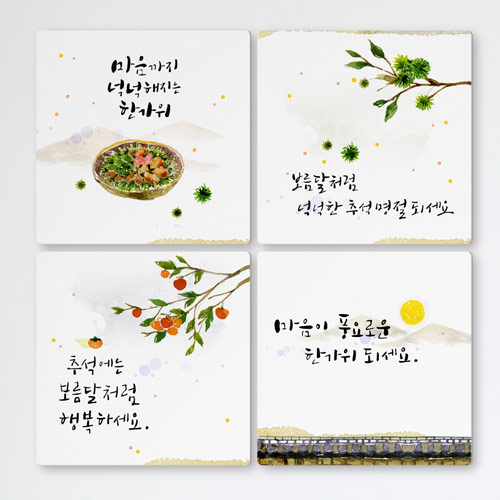 마음까지
넉넉해지는
한가위
보름달처럼
넉넉한 추석 명절 되세요
추석에는
보름달처럼
행복하세요.
마음이 풍요로운
한가위 되세요.